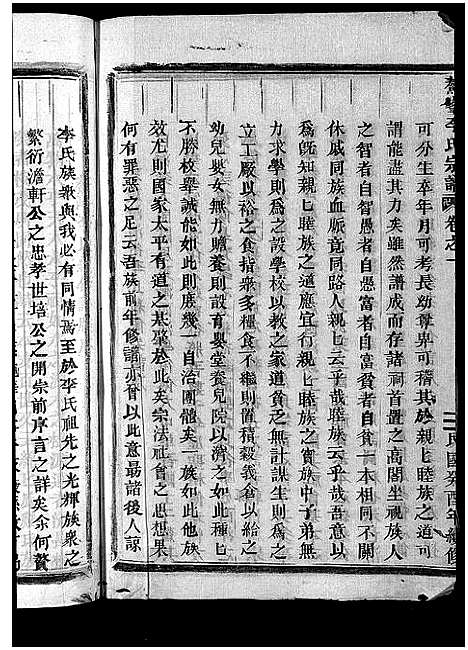 李氏宗譜 卷之一
可分生卒年月可考長幼尊界可稽其於親親睦族之道可
謂能盡其力矣雖然譜成而存諸祠首置之高閣坐視族人
之智者自智愚者自愚富者自富貧者自貧一一本關
休戚同族血脈竟同路人親匕云乎哉睦族云乎哉吾族人
旣知親匕睦族之道應宜行親匕睦族之實族中子弟無
力求學則爲之設學校以敎之家道貧乏無計謀生則爲之
立工厰以裕之食指衆多糧食不繼則置積穀義倉以給之
幼兒嬰女無力贍養則設育嬰堂養兒院以濟之如此種匕
不勝枚舉誠能如此則庶幾一自治團體矣一族如此族匕
效尤則國家太平有道之基肇於此矣宗法社會之思想果
何有罪惡之足云吾族前年修譜亦曾以此意最諸後人諒
李氏族衆與我必有同情焉至於李氏祖先之光輝族衆之
繁衍澹軒公之忠孝世培公之開宗前序言之詳矣余何贅
民國癸酉年續修